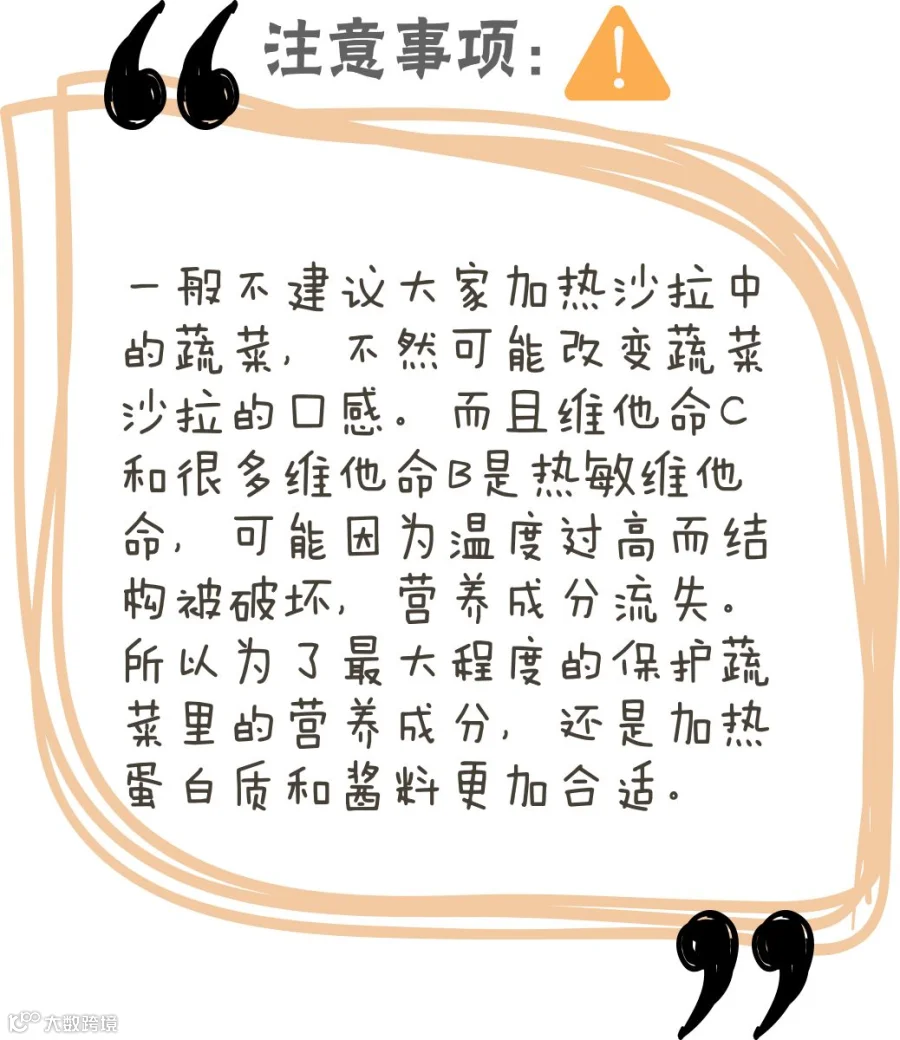 注意事项:
一般不建议大家加热沙拉中
的蔬菜, 不然可能改变蔬菜
沙拉的口感。而且维他命C
和很多维他命B是热敏维他
命, 可能因为温度过高而结
构被破坏, 营养成分流失。
所以为了最大程度的保护蔬
菜里的营养成分, 还是加热
蛋白质和酱料更加合适。
大数跨境